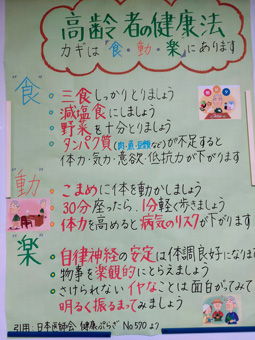 高齢者の健康法
カギは「食・動・楽」にあります
"食"
三食しっかりとりましょう
減塩食にしましょう
野菜を十分とりましょう
タンパク質(肉・魚・豆類など)が不足すると
体力・気力・意欲・低抗力が下がります
"動"
こまめに体を動かしましょう
30分座ったら、1分軽く歩きましょう
体力を高めると病気のリスクが下がります
"楽"
自律神経の安定は体調良好になります
物事を楽観的にとらえましょう
さけられないイヤなことは面白がってみて
明るく振るまってみましょう
引用:日本医師会 健康ぷらざ No570より